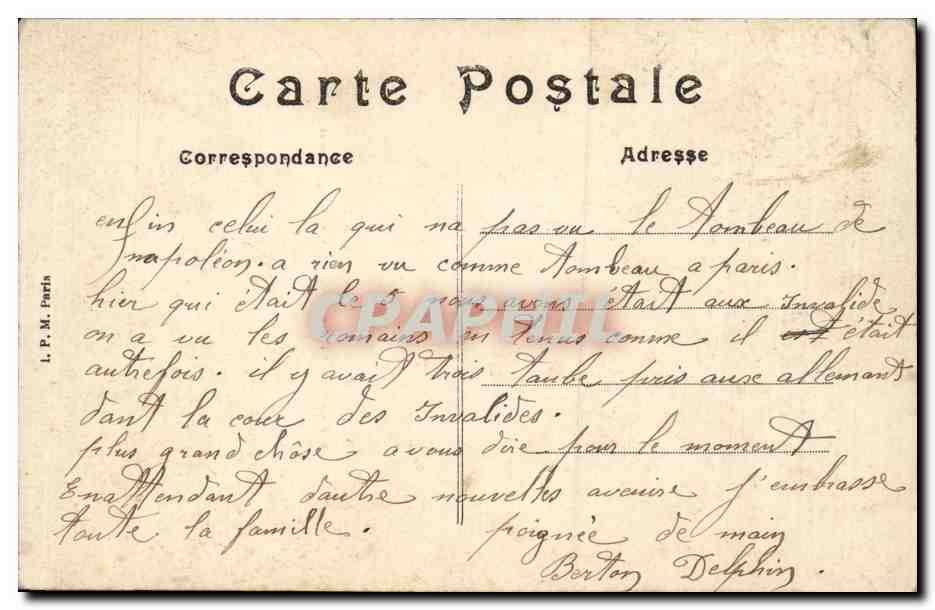 Carte Postale
Correspondance
Adresse
enfin celui la qui na pas vu le tombeau de
napoléon. a rien vu comme tombeau a paris.
hier qui était le 5 nous avons était aux Invalide
on a vu les romains en tenus comme il était
autrefois. il y avait trois taube pris aux allemant
dant la cour des Invalides.
plus grand chôse a vous dire pour le moment
Enattendant dautre nouvelles avenire j'embrasse
toute la famille. poignée de main
Berton Delphin.
I. P. M. Paris
CPAPHIL